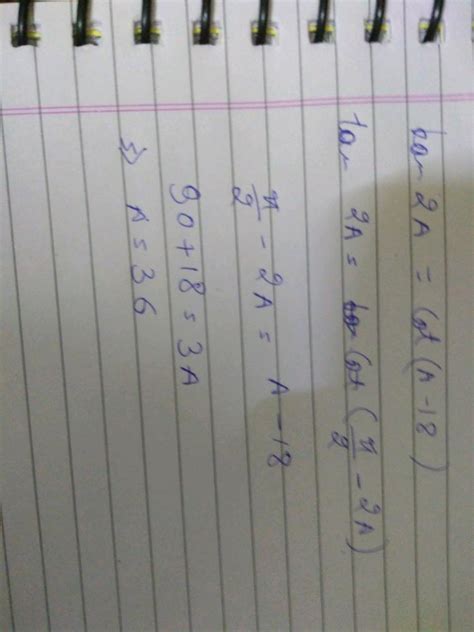 tan 2A = Cot (A-18)
tan 2A = Cot (π/2 - 2A)
π/2 - 2A = A - 18
90 + 18 = 3A
⇒ A = 36